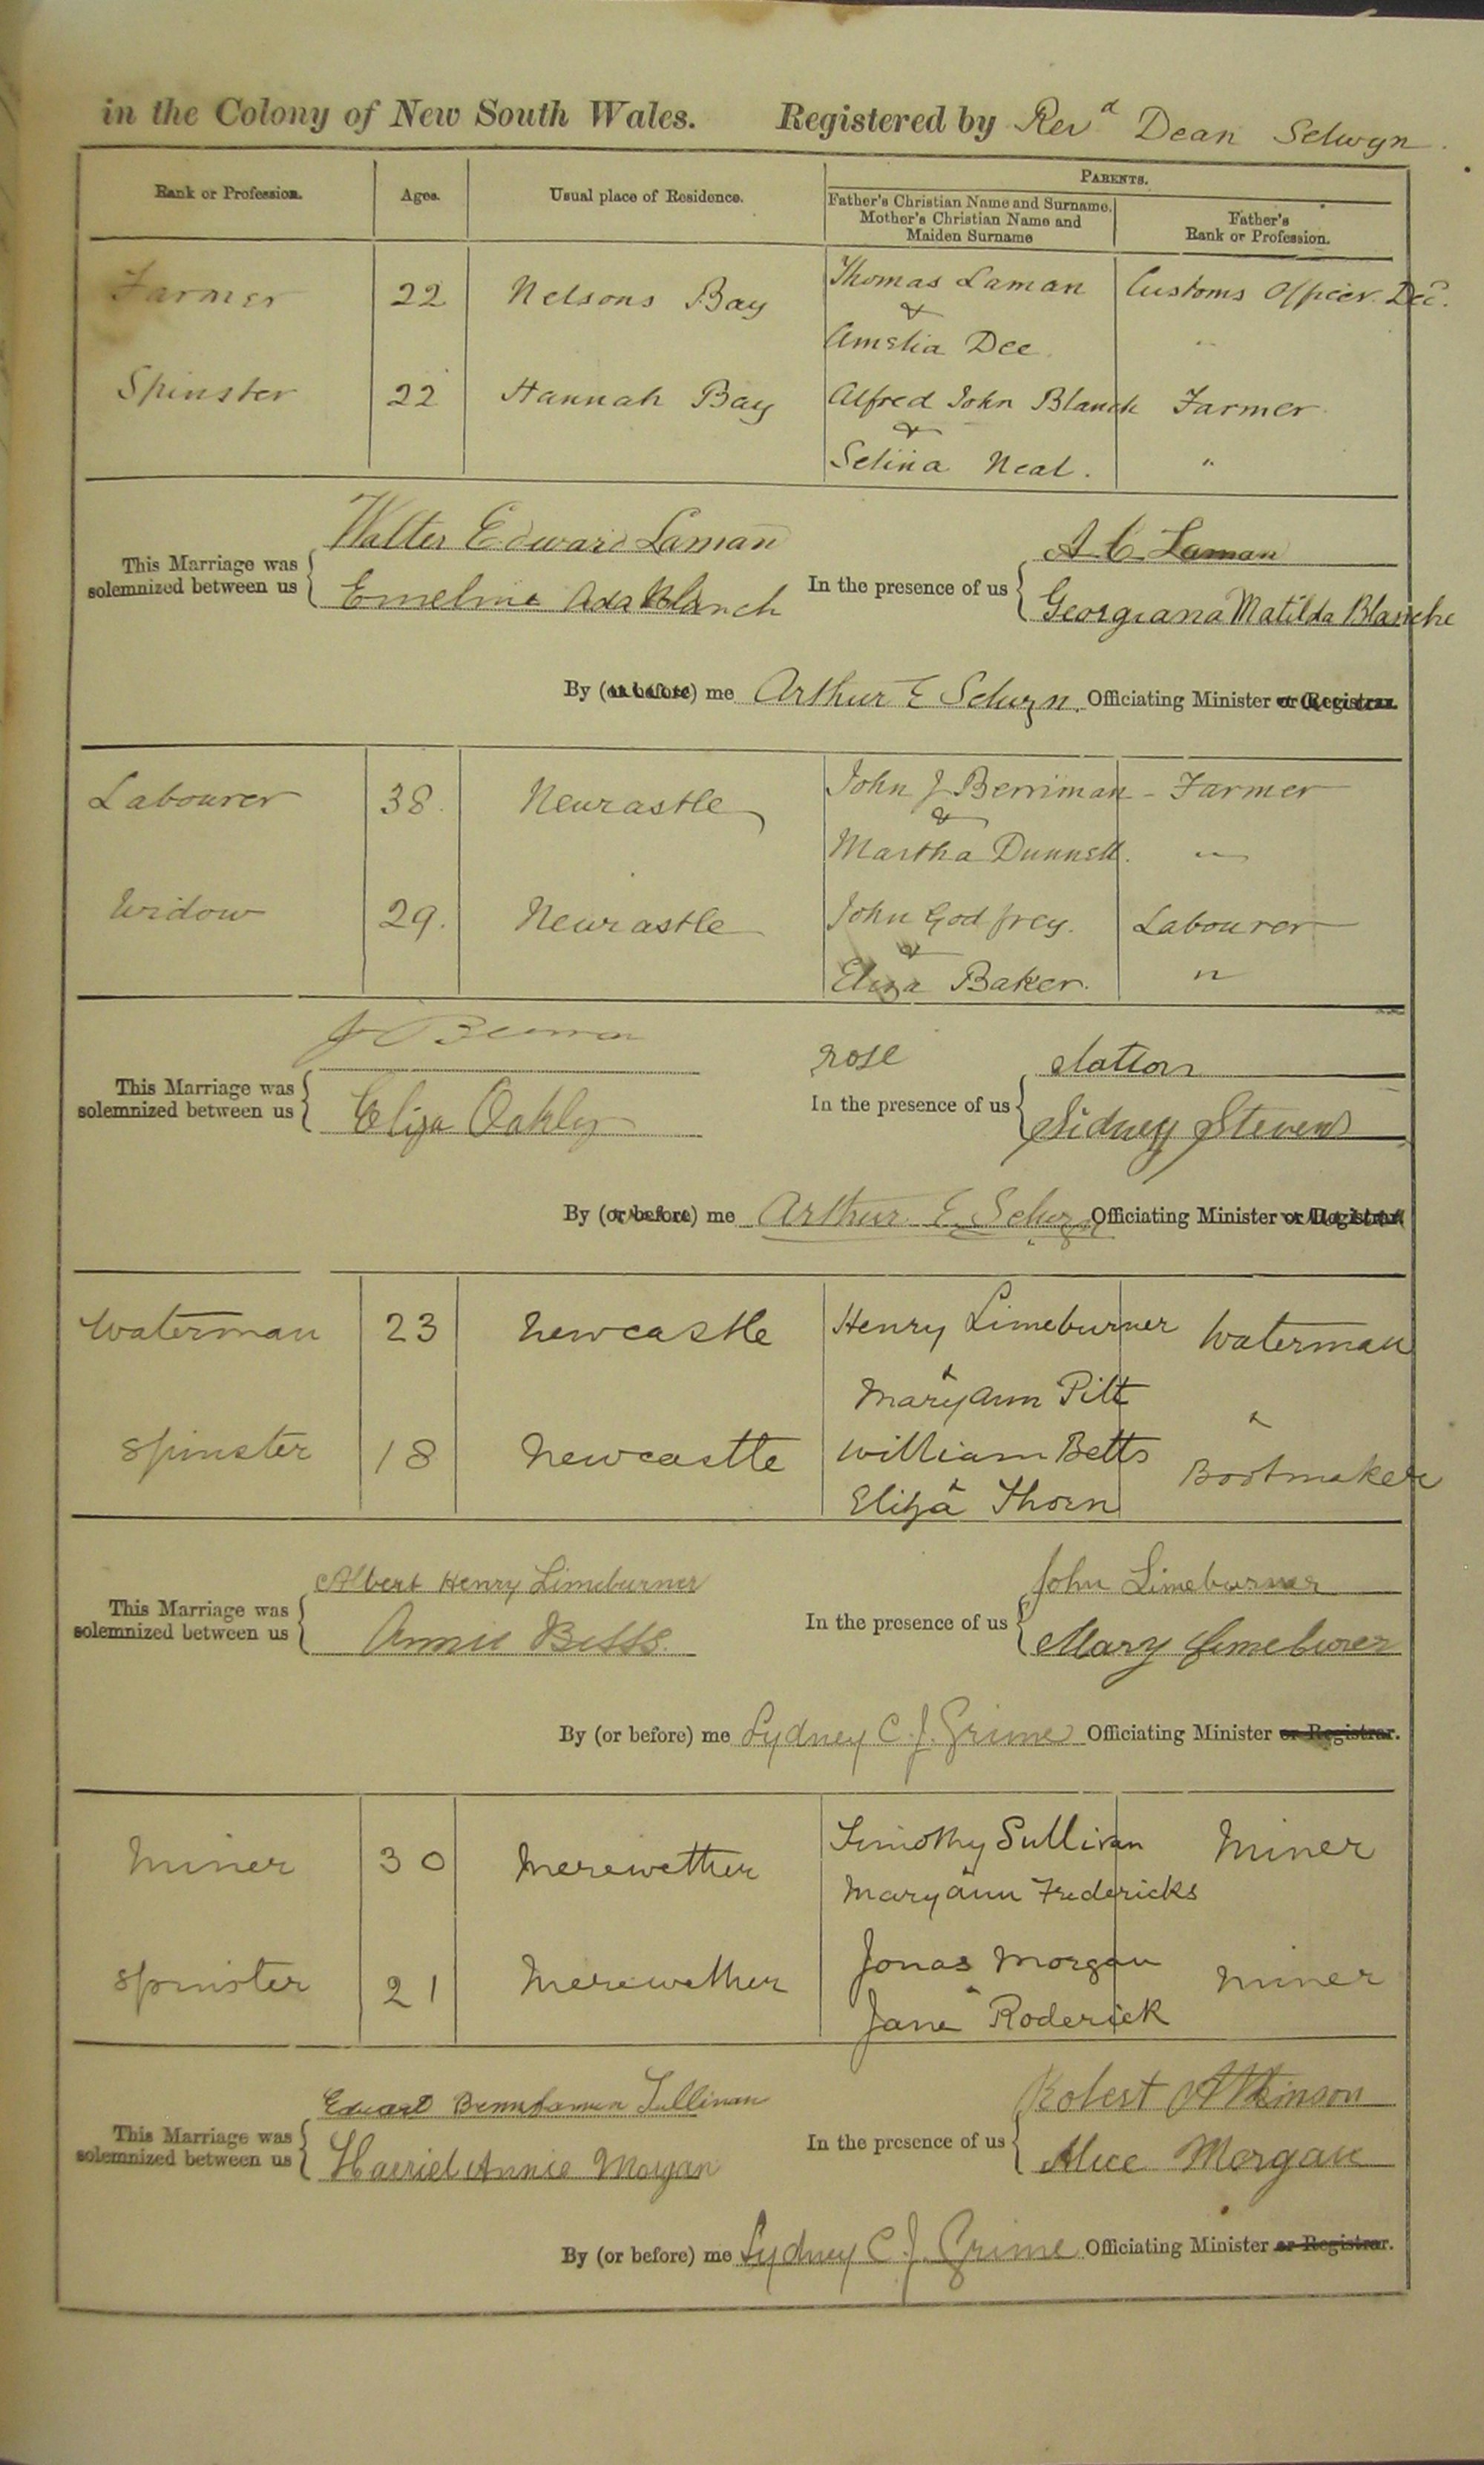 in the Colony of New South Wales. Registered by Revd Dean Selwyn.
Rank or Profession. Ages. Usual place of Residence. PARENTS.
Father's Christian Name and Surname. Mother's Christian Name and Maiden Surname Father's Rank or Profession.
Farmer 22 Nelsons Bay Thomas Laman Customs Officer. Dec.
&
Amelia Dee "
Spinster 22 Hannah Bay Alfred John Blanch Farmer
&
Selina Neal. "
Walter Edward Laman A C Laman
This Marriage was solemnized between us In the presence of us
Emeline Ada Blanch Georgiana Matilda Blanche
By (or before) me Arthur E Selwyn. Officiating Minister or Registrar.
Labourer 38. Newcastle John J Berriman - Farmer
&
Martha Dunnell. "
Widow 29. Newcastle John Godfrey. Labourer
&
Eliza Baker. "
J
rose slatter
This Marriage was solemnized between us In the presence of us
Eliza Oakley Sidney Stevens
By (or before) me Arthur E Selwyn Officiating Minister or Registrar
Waterman 23 Newcastle Henry Limeburner Waterman
&
Maryann Pitt
&
Spinster 18 Newcastle William Betts Bootmaker
&
Eliza Thorn
Albert Henry Limeburner John Limeburner
This Marriage was solemnized between us In the presence of us
Annie Betts. Mary Limeburner
By (or before) me Sydney C. J. Grime Officiating Minister or Registrar.
Miner 30 Merewether Timothy Sullivan Miner
Maryann Fredericks
Spinster 21 Merewether Jonas Morgan Miner
&
Jane Roderick
Sullivan Robert Atkinson
This Marriage was solemnized between us In the presence of us
Harriet Annie Morgan Alice Morgan
By (or before) me Sydney C. J. Grime Officiating Minister or Registrar.